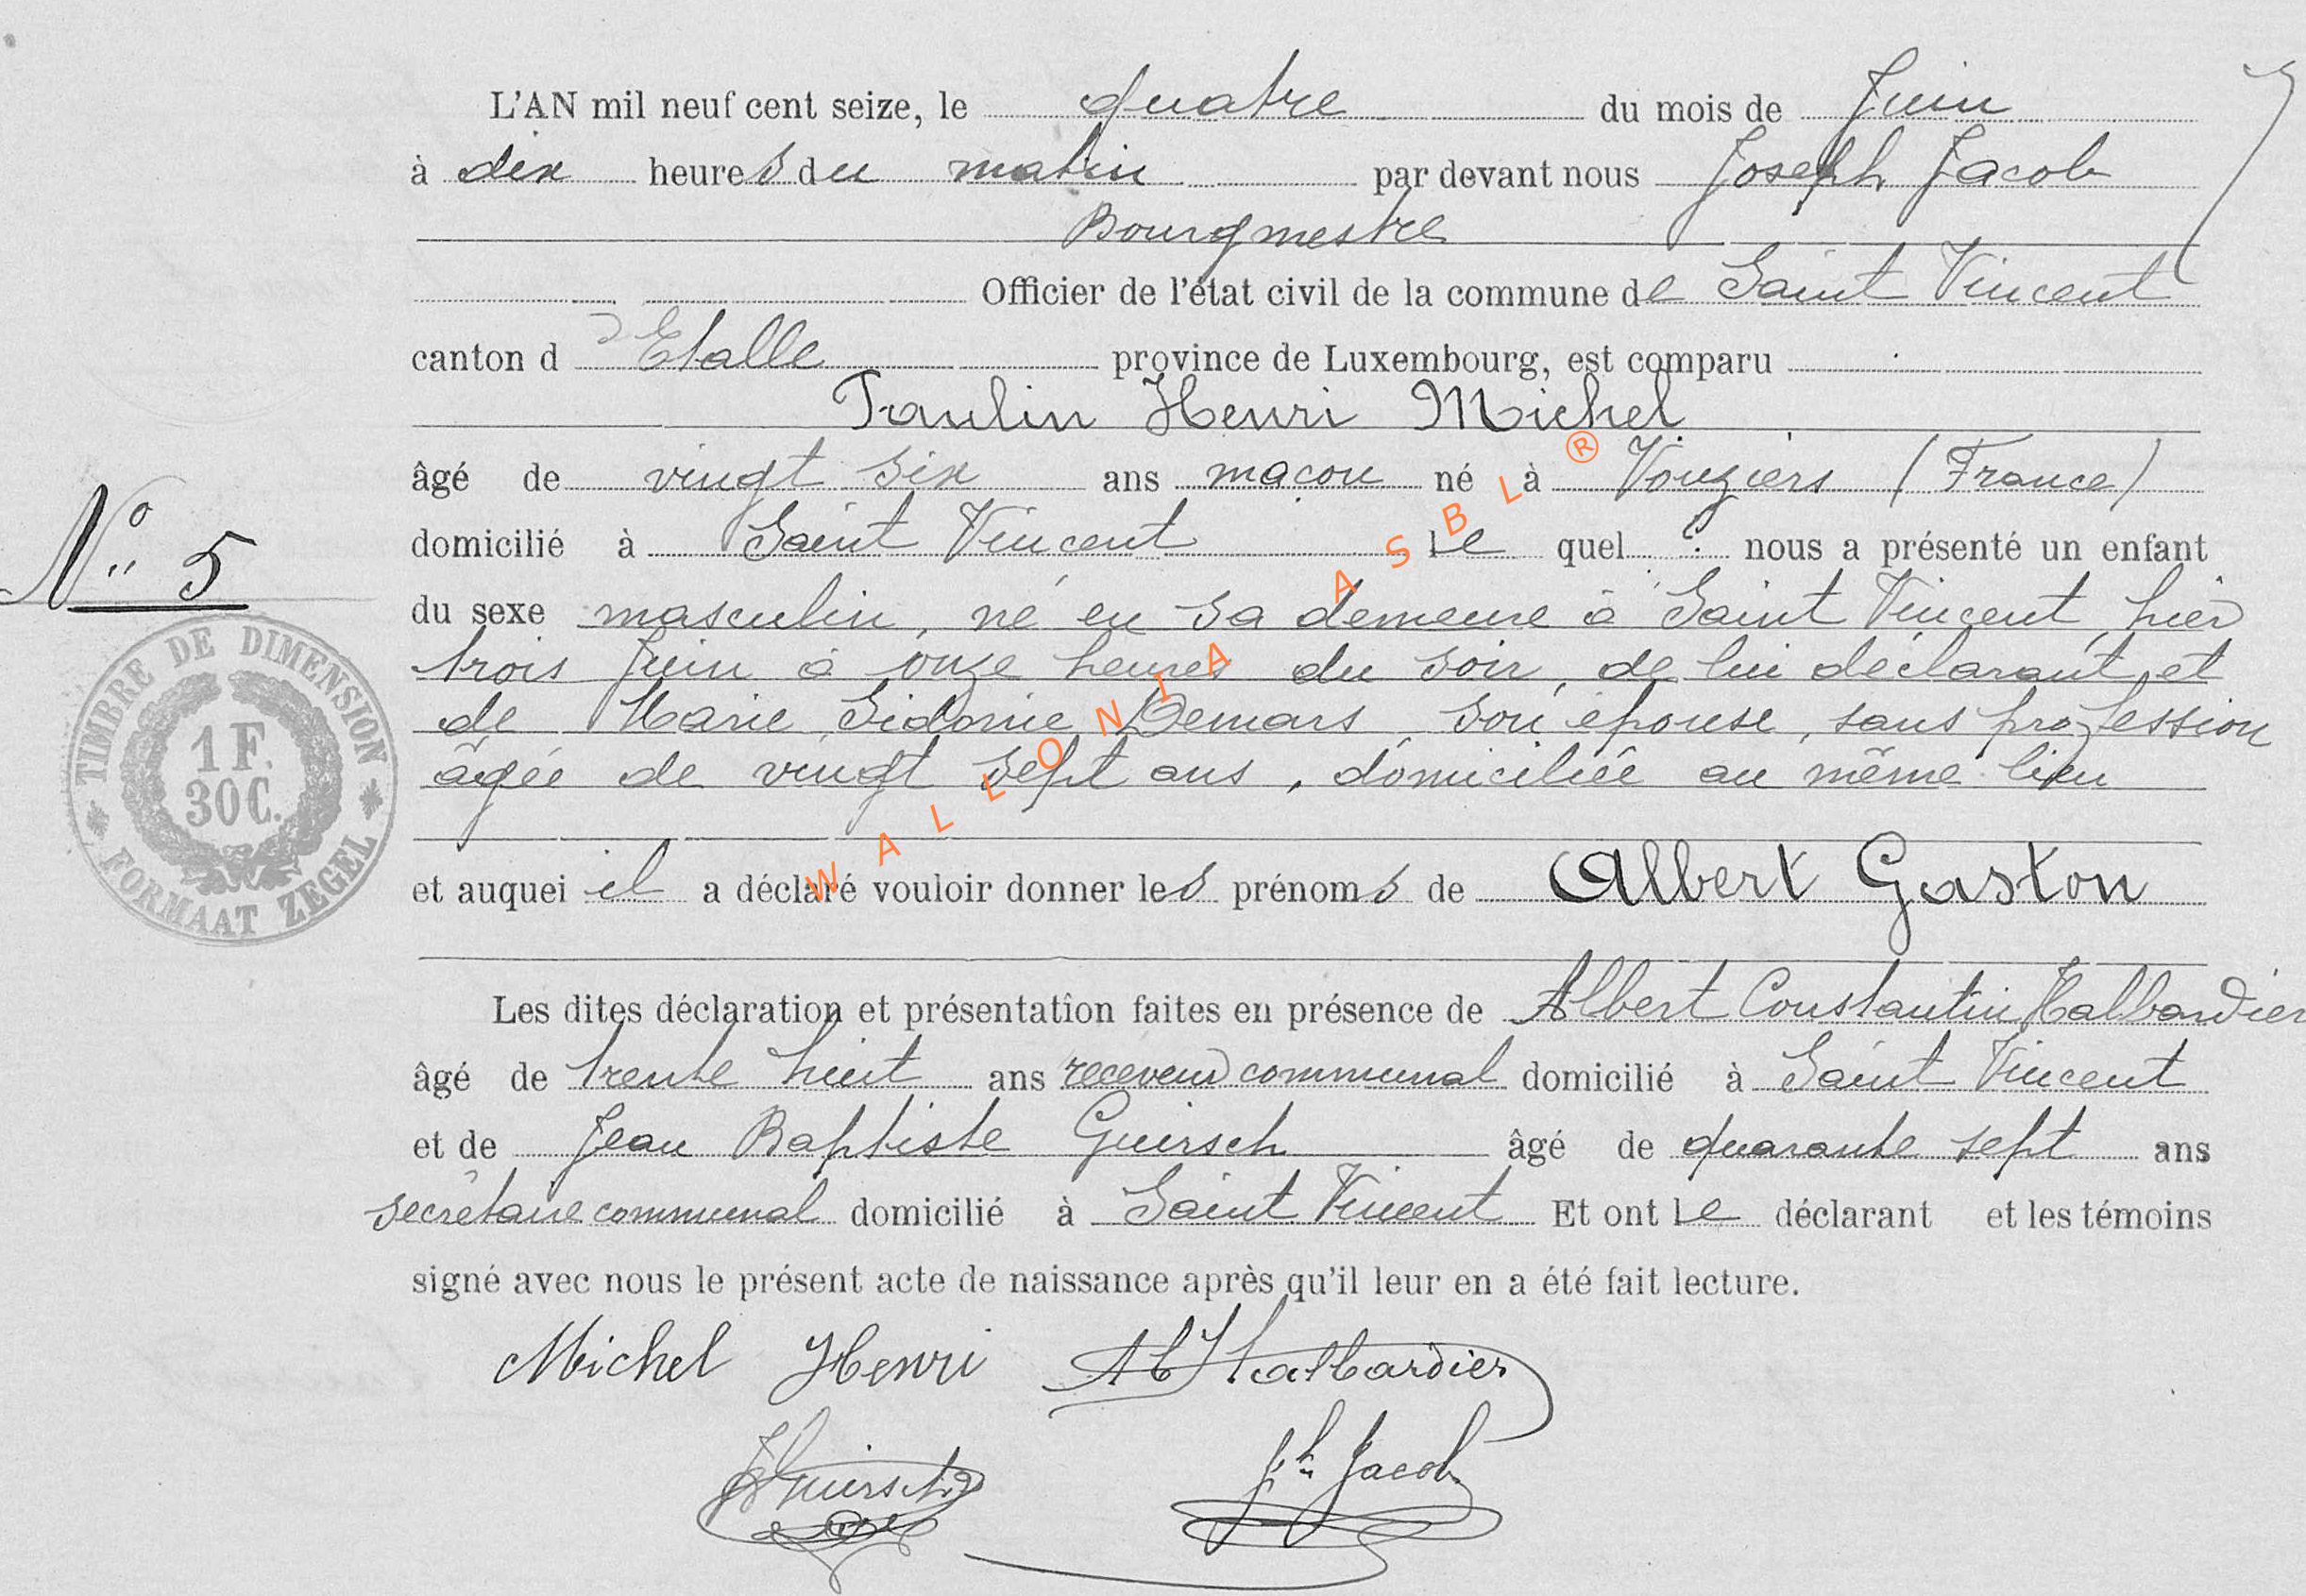 L'AN mil neuf cent seize, le quatre du mois de Juin
à dix heures du matin par devant nous Joseph Jacob
Bourgmestre
Officier de l'état civil de la commune de Saint Vincent
canton d'Etalle province de Luxembourg, est comparu
Paulin Henri Michel
âgé de vingt six ans maçon né à Vouziers (France)
domicilié à Saint Vincent lequel nous a présenté un enfant
N° 5
du sexe masculin, né en sa demeure à Saint Vincent, hier
trois Juin à onze heures du soir, de lui déclarant et
de Marie Sidonie Demars son épouse, sans profession
âgée de vingt sept ans, domiciliée au même lieu
TIMBRE DE DIMENSION
1 F.
30 C.
FORMAAT ZEGEL
et auquel il a déclaré vouloir donner les prénoms de Albert Gaston
Les dites déclaration et présentation faites en présence de Albert Constantin Halbardier
âgé de trente huit ans receveur communal domicilié à Saint Vincent
et de Jean Baptiste Guirsch âgé de quarante sept ans
secrétaire communal domicilié à Saint Vincent Et ont le déclarant et les témoins
signé avec nous le présent acte de naissance après qu'il leur en a été fait lecture.
Michel Henri Ab Halbardier
JBGuirsch Jh Jacob
WALLONIA ASBL ®